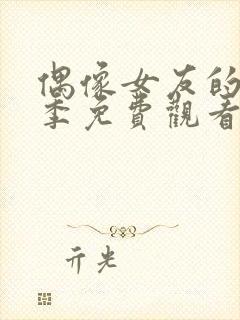 偶像女友的
季免費觀看
亓光